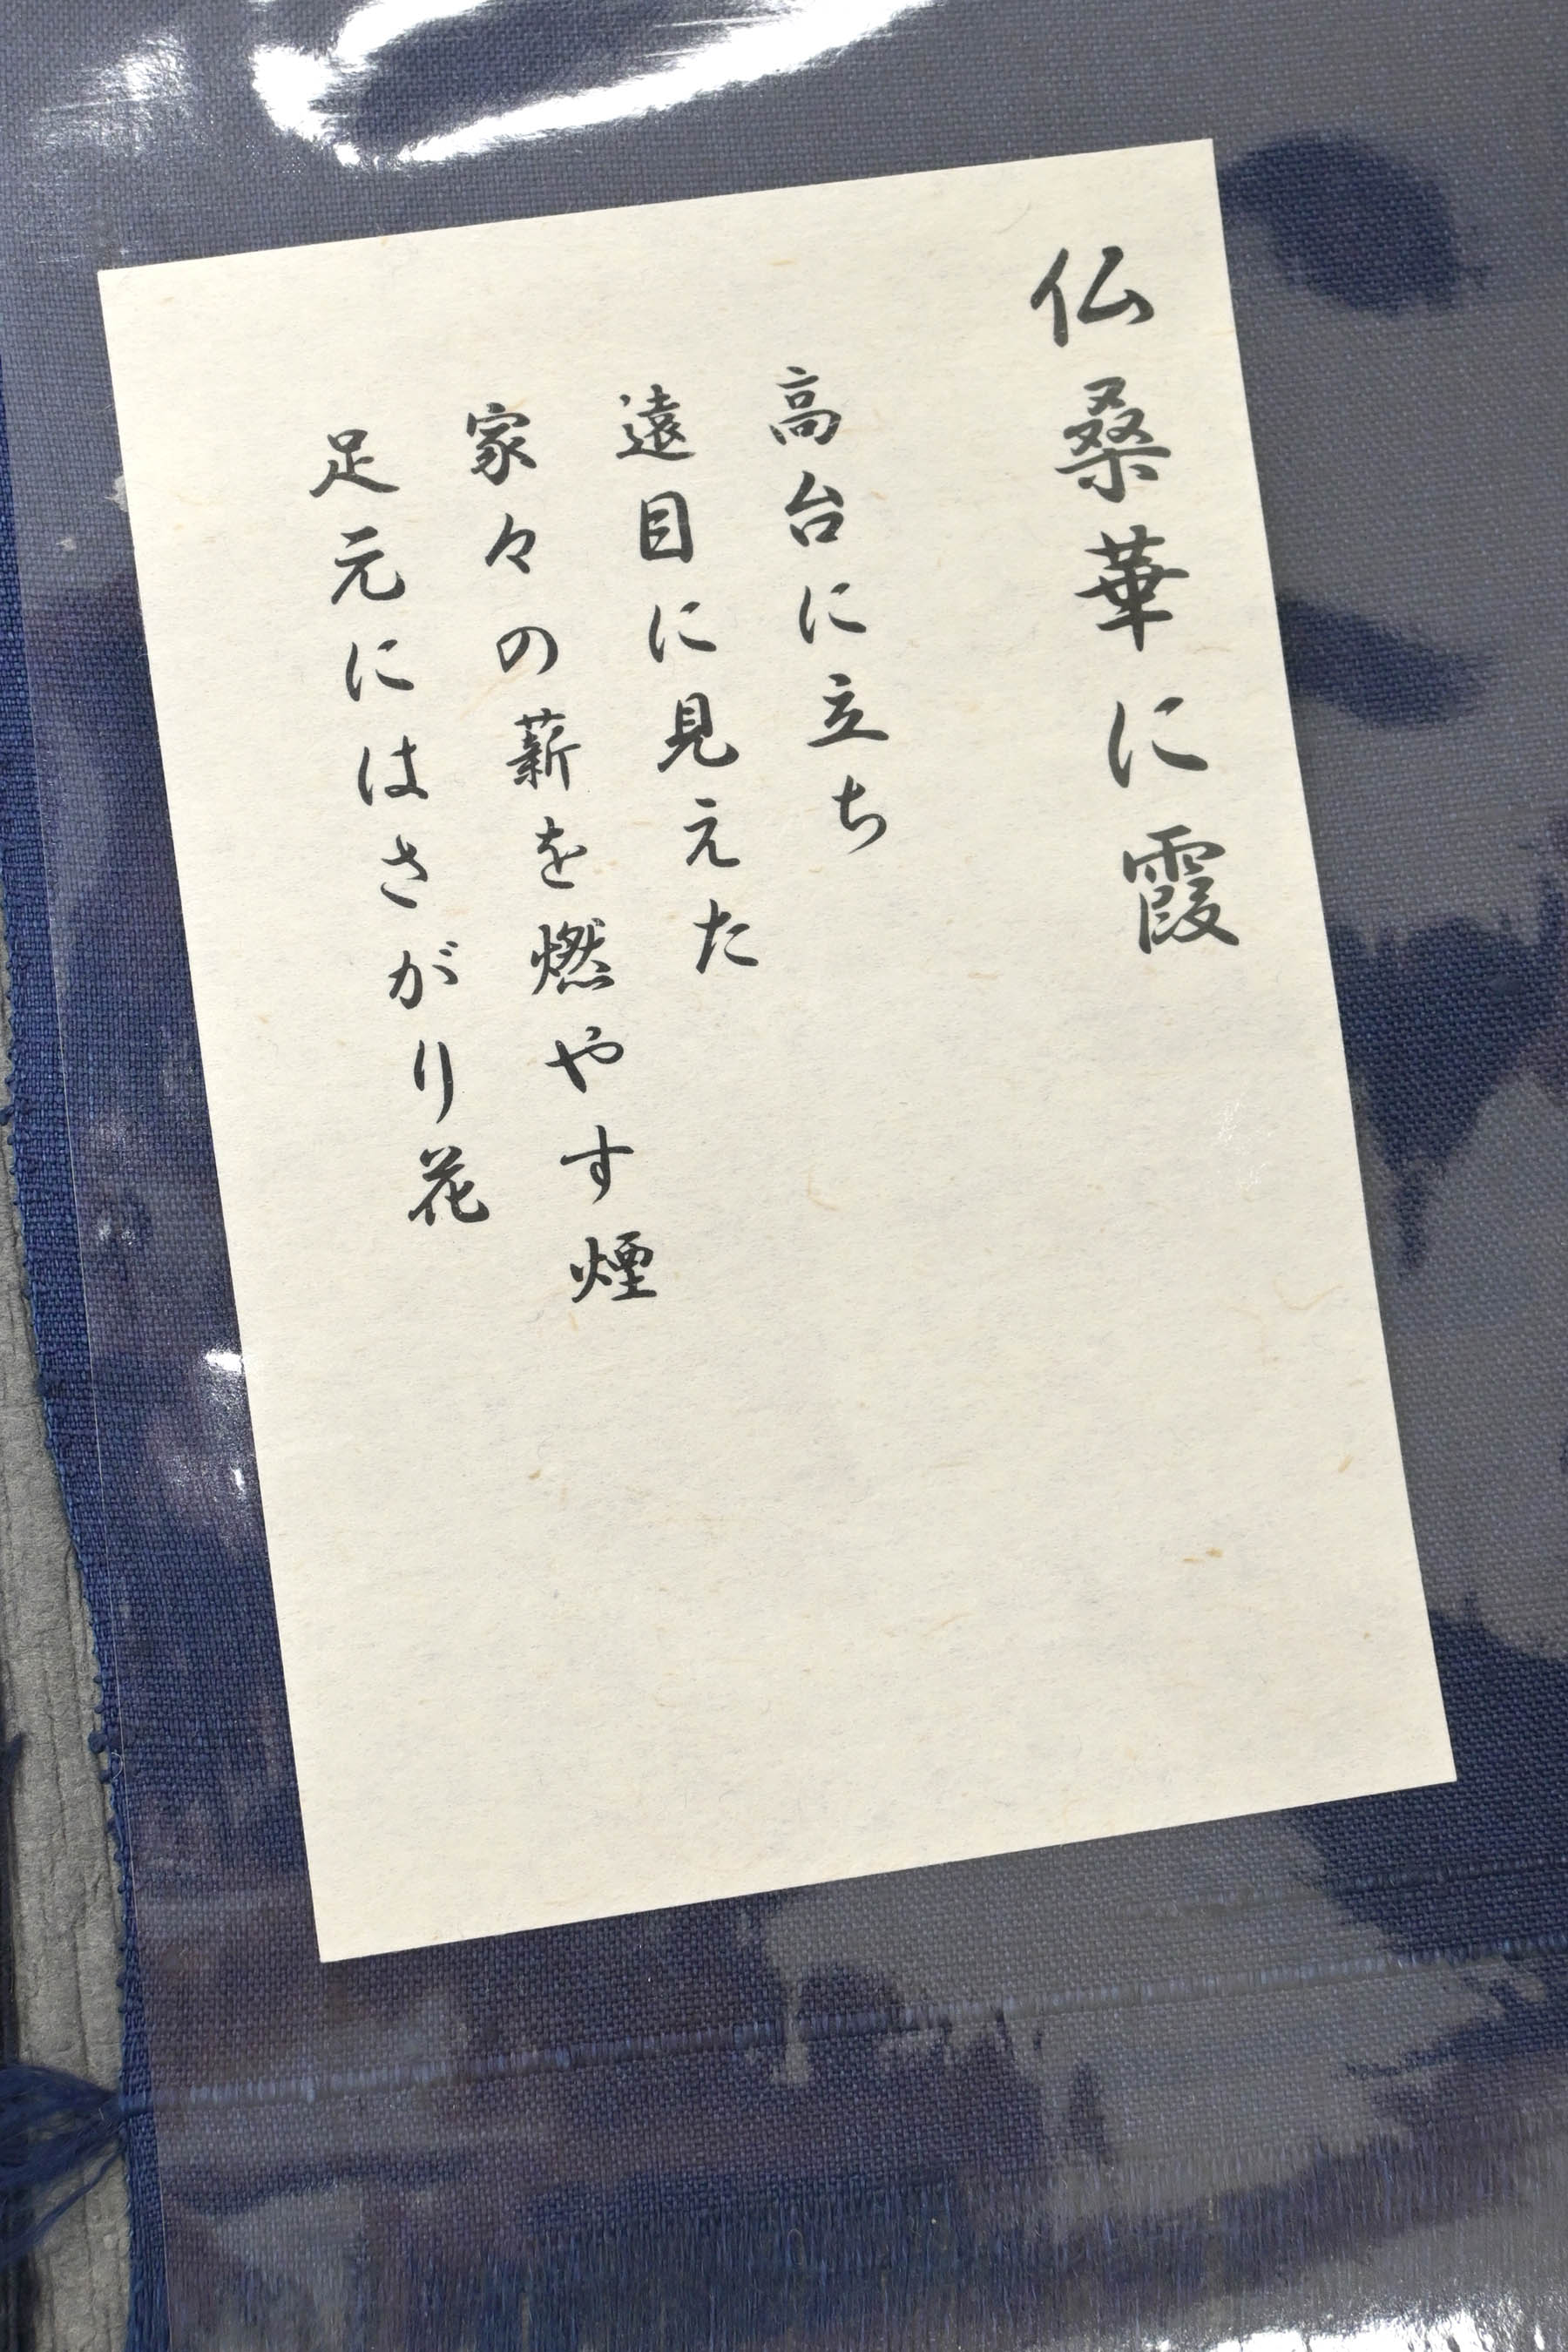 仏桑華に霞
高台に立ち
遠目に見えた
家々の薪を燃やす煙
足元にはさがり花